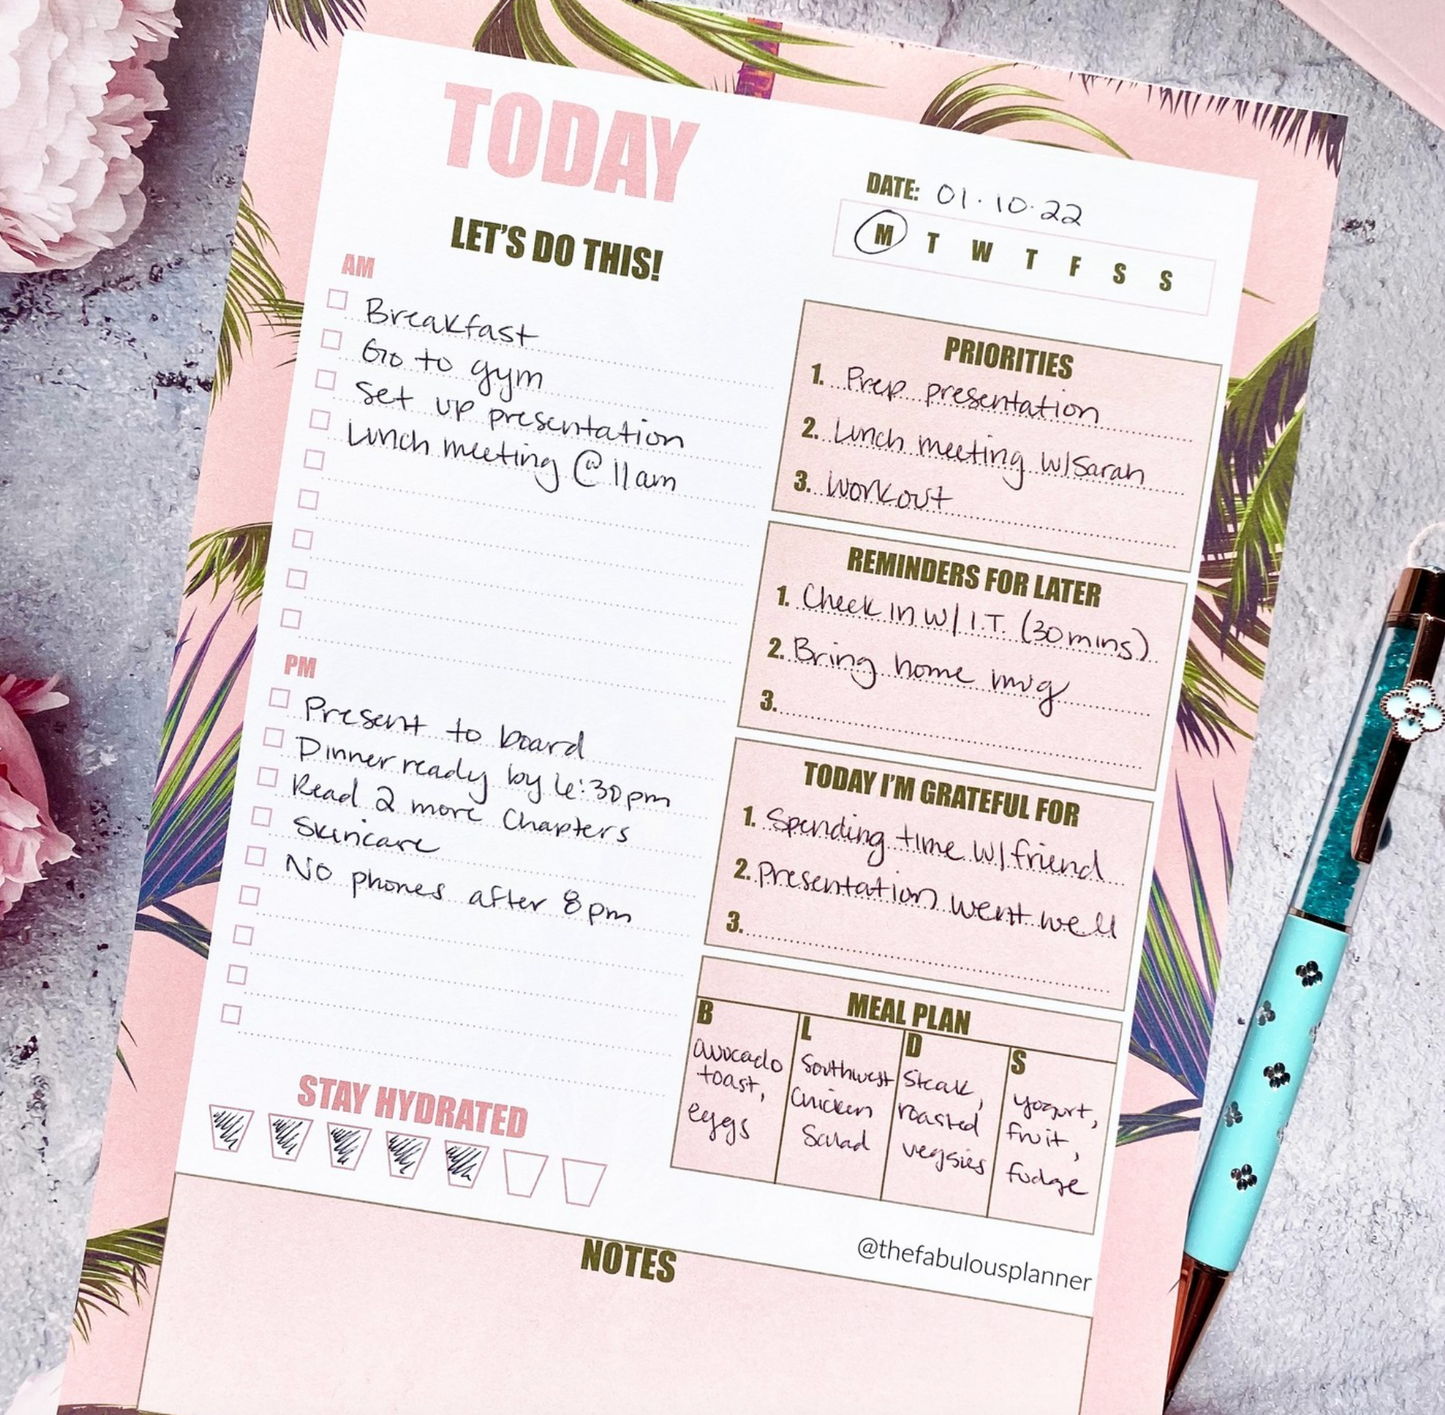 TODAY
DATE: 01.10.22
M T W T F S S
LET'S DO THIS!
AM
Breakfast
Go to gym
Set up presentation
Lunch meeting @ 11am
PM
Present to board
Dinner ready by 6:30pm
Read 2 more Chapters
Skincare
No phones after 8pm
STAY HYDRATED
PRIORITIES
1. Prep presentation
2. Lunch meeting w/Sarah
3. Workout
REMINDERS FOR LATER
1. Check in w/ I.T. (30mins)
2. Bring home mug
3.
TODAY I'M GRATEFUL FOR
1. Spending time w/friend
2. Presentation went well
3.
MEAL PLAN
B
avocado
toast,
eggs
L
Southwest
Chicken
Salad
D
Steak,
roasted
veggies
S
yogurt,
fruit,
fudge
@thefabulousplanner
NOTES